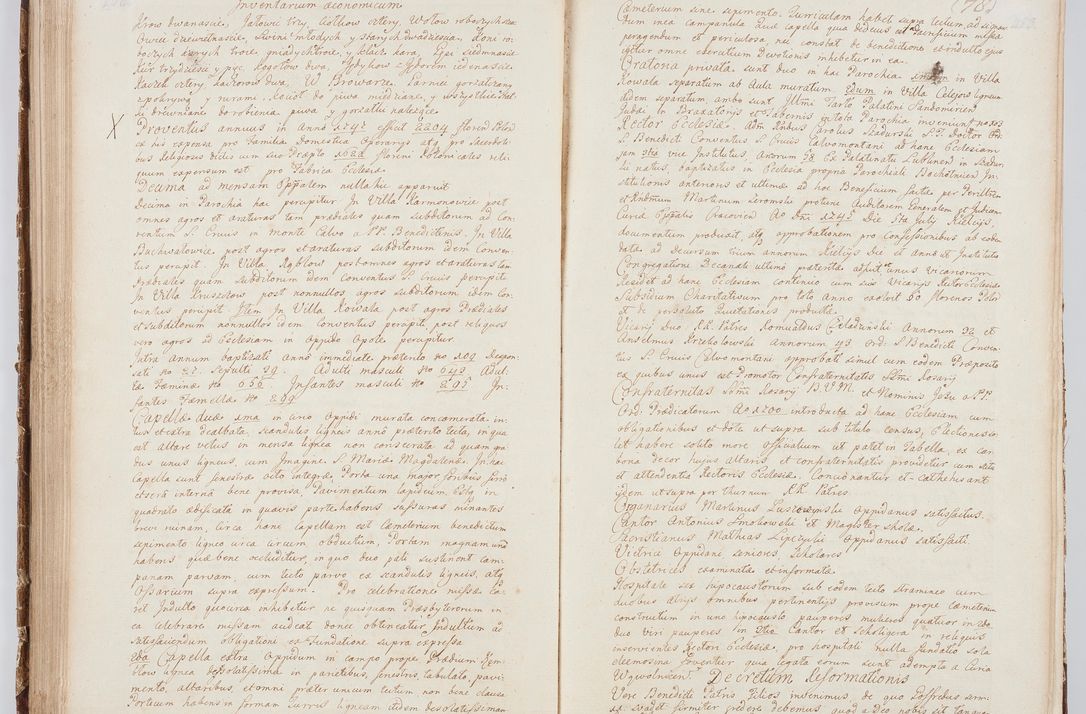 Inventarium œconomicum
Krow dwanascie, Jałowic trzy, Ciołkow cztery, Wołow roboczych
Owiec dziewietnascie, Swini młodych y starych dwadziescia, Koni ro
boczych troie, gniadych troie, y klacz kara, Gęsi siedmnascie
Kur trzydziesci y pięć, Kogotow dwa, Jędykow z Jędorem iedenascie
Kaczek cztery, kaczorow dwa, W Browarze Garniec gorzałczany
z pokrywą y rurami, Kocioł do piwa miedziany, y wszystkie
drewniane do robienia piwa y gorzałki należące.
X Proventus annuus in Anno 1747 effecit 2204 floren Polon
ex his expensa pro Familia Domestica Operarijs atq pro Sacerdoti
bus religiosis vicis cum suo Præpto 1682 floreni Polonicales reli
quum expensum est pro Fabrica Ecclesiæ
Decima ad mensam Eppalem nulla hic apparuit
Decima in Parochia hac percipitur In Villa Karmanowice post
omnes agros et araturas tam prædiales quam subditorum ad Con
ventum S. Crucis in Monte Calvo a P.P. Benedictinis. In Villa
Buchwałowice post agros et araturas subditorum idem Conven
tus percipit. In Villa Rąbłow post omnes agros et araturas tam
Prædiales quam subditorum idem Conventus S. Crucis percipit
In Villa post nonnullos agros subditorum idem Con
ventus percipit Item In Villa Kowala post agros Prædiales
et subditorum nonnullos idem Conventus percipit, post reliquos
vero agros ad Ecclesiam in Oppido Opole percipitur.
Intra Annum baptizati anno immediate præterito No 109 Respon
sati No 27. Sepulti 29. Adulti masculi No 640 Adul
tæ Fæminæ No 656 Infantes masculi No 295 In
fantes Fæmellæ No 299
Capellæ duæ 1ma in circo Oppidi murata concamerata in
tus et extra dealbata, scandulis ligneis anno præterito tecta, in qua
est altare vetus in mensa lignea non consecrata ad quam gra
dus unus ligneus, cum Imagine S. Mariæ Magdalenæ. In hac
capella sunt fenestræ octo integræ, Porta una major foribus ferro
et sera interna bene provisa, Pavimentum lapideum,
quadrato ædificata in quavis parte habens fissuras minantes
brevi ruinam, circa hanc capellam est Cæmeterium benedictum
sepimento ligneo circa circum obductum, Portam magnam
habens quæ bene occluditur, in quo duo pali sustinent cam
panam parvam, cum tecto parvo ex scandulis ligneis, atq
Ossarium supra expressum. Pro celebratione missæ ca
ret Indulto quocirca inhibetur ne quisquam Præsbyterorum in
ea celebrare missam audeat donec obtineatur Indultum ad
satisfaciendum obligationi ex Fundatione supra expressa
2da Capella extra Oppidum in campo prope Prædium Kęm
błow lignea desolatissima in parietibus, fenestris, tabulato, pavi
mento, altaribus, et omni præter unicum tectum, non bene clausa
Porticum habens in formam turris ligneam itidem desolatissimam
(78)
Cæmeterium sine sepimento. Turriculam habet supra tectum, ad signan
dum inea campanula Quæ capella qua dedeces est Beneficium missæ
peragendum et periculosa, ne constat de benedictione et indulto ejus
igitur omne exercitium Devotionis inhibetur in ea.
Oratoria privata sunt duo in hac Parochia in Villa
Kowala separatum ab Aula muratum, 2dum in Villa Celejow ligneum
itidem separatum, ambo sunt Illmi Tarło Palatini Sandomirien
Judæi in Braxatorijs et Tabernis intota Parochia inveniunt No 203
Rector Ecclesiæ Adm Rndus Carolus Szadurski S.T. Doctor Ord
S. Benedicti Conventus S. Crucis Calvomontani ad hanc Ecclesiam
jam 3tia vice Institutus, Anorum 78 Ex Palatinatu Lublinen in Bądur
tu natus, baptizatus in Ecclesia propria Parochiali Bochotnicen In
stitutionis anterioris et ultimæ ad hoc Beneficium factæ per Perillrem
et Rndmum Martinum Zeromskie protunc Auditorem Generalem et Judicem
Curiæ Eppalis Cracovien Ao Dni 1745 Die 5ta Julij Kielcijs,
documentum produxit, atq approbationem pro confessionibus ab eodem
data ad decursum trium annorum Kielcijs die et anno ut Institutio
Congregatione Decanali ultimo præterita adfuit unus vicariorum
Residet ad hanc Ecclesiam continuo cum suis Vicarijs Rector Ecclesiæ
Subsidium Charitativum pro toto Anno exolvit 60 florenos Polon
et de persoluto Quietationes produxit.
Vicarij duo R.R. Patres Romualdus Celadunski Annorum 32 et
Anselmus Krzekołowski Annorum 43 Ord: S. Benedicti Conven
tus S. Crucis Calvomontani approbati simul cum eodem Præposito
ex quibus unus est Promotor Confraternitatis SSmi Rosarij
Confraternitas SSmi Rosarij B.V.M. et Nominis Jesu a P.P.
Ord: Prædicatorum Ao 1700 introducta ad hanc Ecclesiam cum
obligationibus et dote ut supra sub titulo census, Electiones so
let habere solito more Officialium ut patet in Tabella, ex car
bona decor hujus altaris et confraternitatis providetur cum scitu
et attendentia Rectoris Ecclesiæ. Concionantur et Cathehisant
ijdem ut supra per thurnum R.R. Patres.
Organarius Martinus Luszczewski Oppidanus satisfacitus.
Cantor Antonius Smokowski et Magister scholæ.
Sacristianus Mathias Lipczylic Oppidanus satisfacit.
Vietrici Oppidani seniores, Scholares
Obstetrices examinatæ et informatæ
Hospitale sex hipocaustorum sub eodem tecto stramineo cum
duobus atrijs omnibus pertinentijs provisum prope cæmeterium
constructum in uno hipocausto pauperes mulieres quatuor in 2do
duo viri pauperes in 3tio Cantor et Scholigera in reliquis
inservientes Rectori Ecclesiæ, pro hospitali nulla fundatio sola
eleemosina foventur quia legata eorum sunt adempta a Curia
Wąwolnicen. Decretum Reformationis
Vere Benedicti Patris Filios invenimus, de quo Possredus
suadet firmiter credere debemus quod a Deo nobis sit tanqua